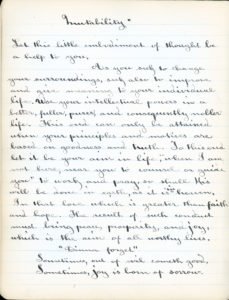 "Mutability"
Let this little enlivenment of thought be
a help to you,
As you seek to change
your surroundings, seek also to improve
and give meaning to your individual
life, Use your intellectual powers in a
better, fuller, purer, and consequently nobler
life. This end can only be attained
when your principles and motives are
based on goodness and truth. To this end
let it be your aim in life, when I am
not here, near you to counsel or guide
you to work and pray, so shall His
will be done in earth, as it is in heaven,
In that love which is greater than faith
and hope. The result of such conduct
must bring peace, prosperity, and joy,
which is the aim of all worthy lives.
"Dinna forget"
Sometimes, out of evil cometh good,
Sometimes, Joy is born of sorrow.